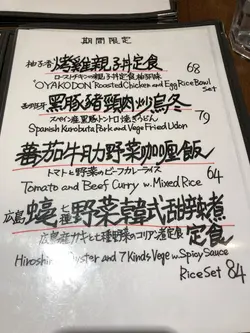 期間限定
柚子香 烤雞親子丼定食 68
ローストチキンの親子丼定食 柚胡味
"OYAKODON" Roasted Chicken and Egg Rice Bowl Set
西班牙 黑豚豬頸肉炒烏冬 79
スペイン産黒豚トントロ焼きうどん
Spanish Kurobuta Pork and Vege Fried Udon
蕃茄牛肋野菜咖喱飯
トマトと野菜のビーフカレーライス 64
Tomato and Beef Curry w. Mixed Rice
広島 蠔七種野菜韓式甜辣煮定食
広島産カキと七種野菜のコリアン煮定食
Hiroshima Oyster and 7 Kinds Vege w Spicy Sauce
Rice Set 84